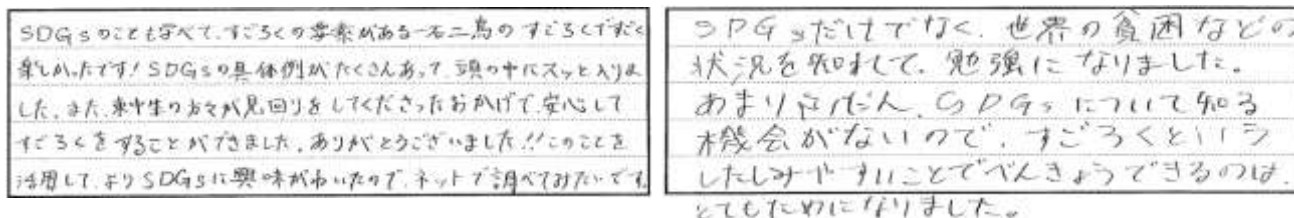 SDGsのことも学べて、すごろくの要素がある一石二鳥のすごろくですごく
楽しかったです!SDGsの具体例がたくさんあって、頭の中にスッと入りま
した。また、東中生の方々が見回りをしてくださったおかげで、安心して
すごろくをすることができました。ありがとうございました!!このことを
活用して、よりSDGsに興味がわいたので、ネットで調べてみたいです。
SDGsだけでなく、世界の貧困などの
状況を知れて、勉強になりました。
あまりふだん、SDGsについて知る
機会がないので、すごろくという
したしみやすいことでべんきょうできるのは、
とてもためになりました。